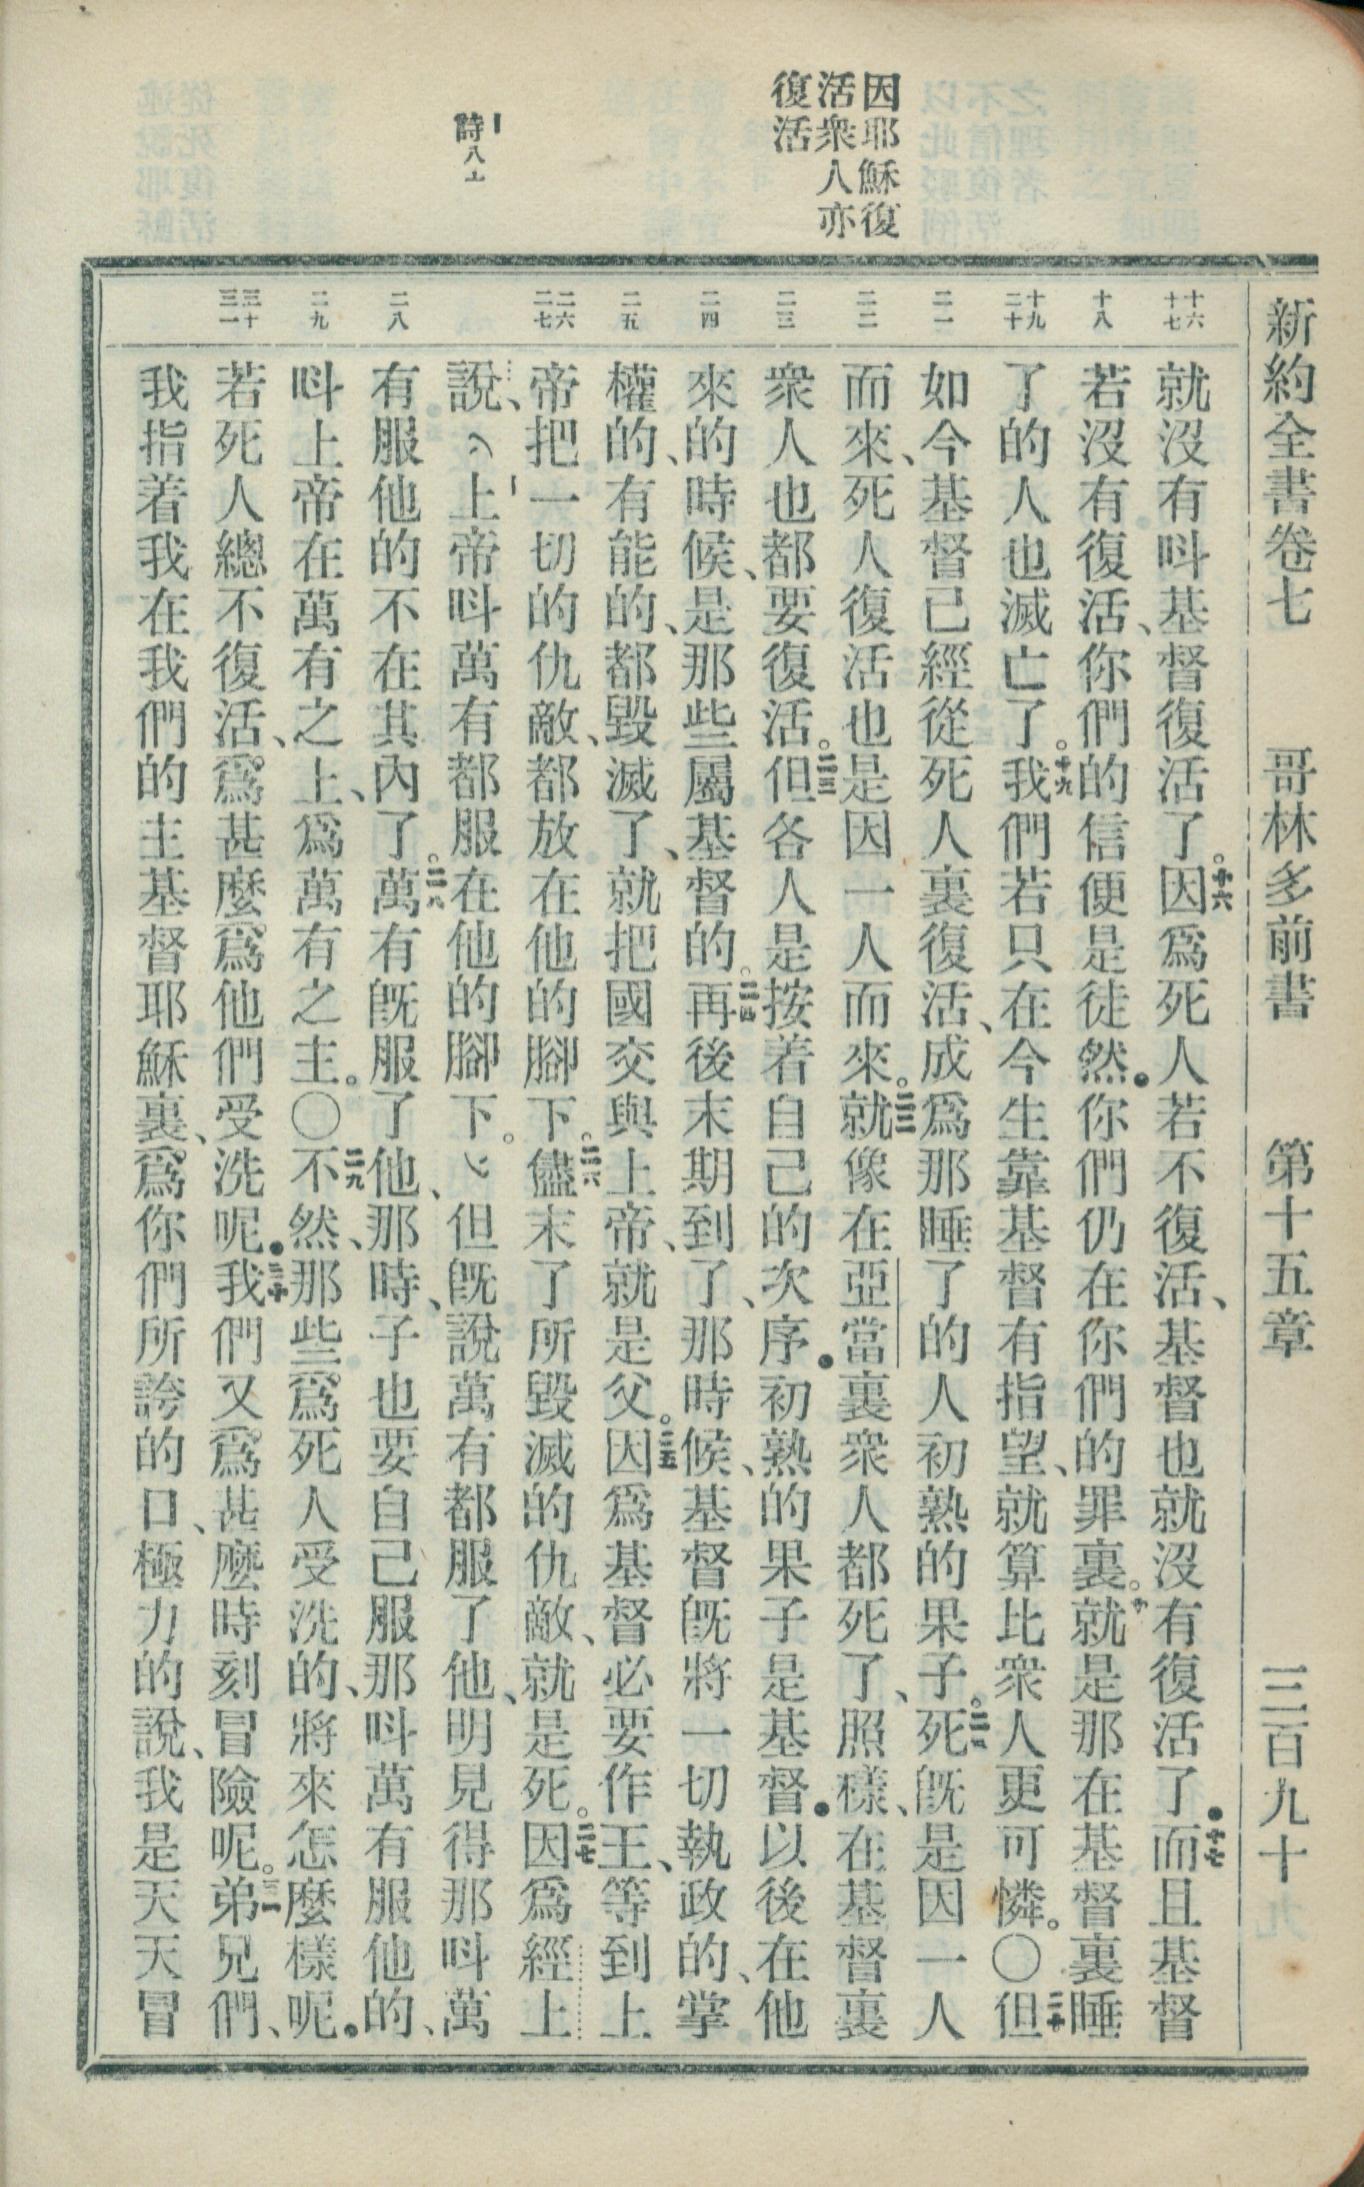 新約全書卷七 哥林多前書 第十五章 三百九十
因耶穌復
活衆人亦
復活
詩八
十六
十七
十八
十九
二十
二一
二二
二三
二四
二五
二六
二七
二八
二九
三十
三一
就沒有呌基督復活了。十六因爲死人若不復活、基督也就沒有復活了●十七而且基督
若沒有復活、你們的信便是徒然●你們仍在你們的罪裏。十八就是那在基督裏睡
了的人也滅亡了。十九我們若只在今生靠基督有指望、就算比衆人更可憐。〇二十但
如今基督已經從死人裏復活、成爲那睡了的人初熟的果子。二一死旣是因一人
而來、死人復活也是因一人而來。二二就像在亞當裏衆人都死了、照樣、在基督裏
衆人也都要復活。二三但各人是按着自己的次序●初熟的果子是基督●以後在他
來的時候、是那些屬基督的。二四再後末期到了、那時候、基督旣將一切執政的、掌
權的、有能的、都毀滅了、就把國交與上帝、就是父。二五因爲基督必要作王、等到上
帝把一切的仇敵、都放在他的腳下。二六儘末了所毀滅的仇敵、就是死。二七因爲經上
說、上帝呌萬有都服在他的腳下。但旣說萬有都服了他、明見得那呌萬
有服他的不在其內了。二八萬有旣服了他、那時、子也要自己服那呌萬有服他的、
呌上帝在萬有之上、爲萬有之主。〇二九不然、那些爲死人受洗的、將來怎麼樣呢●
若死人總不復活、爲甚麼爲他們受洗呢●三十我們又爲甚麼時刻冒險呢。三一弟兄們、
我指着我在我們的主基督耶穌裏、爲你們所誇的口、極力的說、我是天天冒